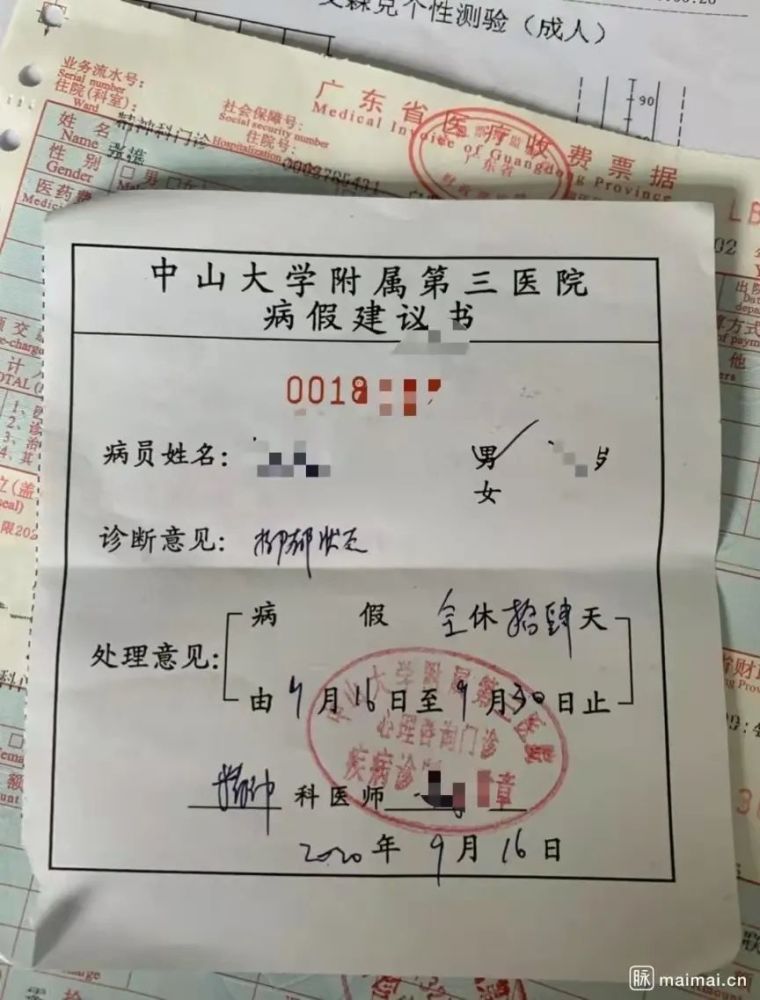 艾森克个性测验（成人）
90
业务流水号：
Serial number
住院(科室)：
Ward
精神科门诊
社会保障号：
Social security number
住院号：
Hospitalization
广东省医疗收费票据
Medical Invoice of Guangdong Province
姓名
Name
性别
Gender
男
医药费
中山大学附属第三医院
病假建议书
0018
病员姓名：
男✓
岁
女
诊断意见：抑郁状态
处理意见：
病假 全休拾肆天
由9月16日至9月30日止
中山大学附属第三医院
心理咨询门诊
疾病诊
章
精神科医师
2020年9月16日
脉 maimai.cn